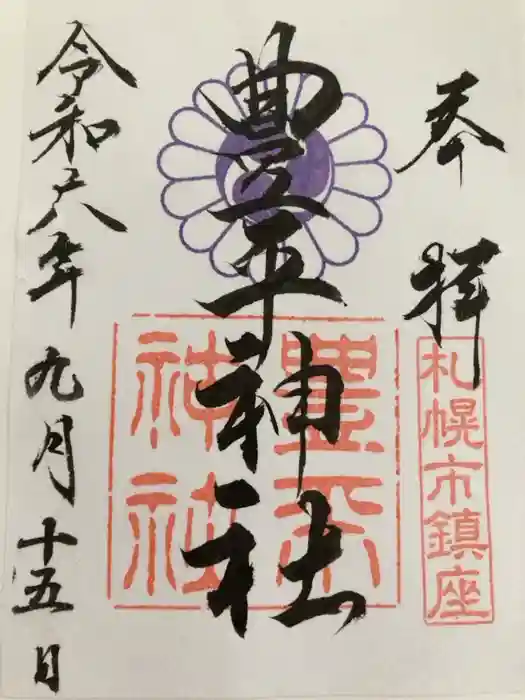 奉拝
札幌市鎮座
豊平神社
豊平
神社
令和六年九月十五日